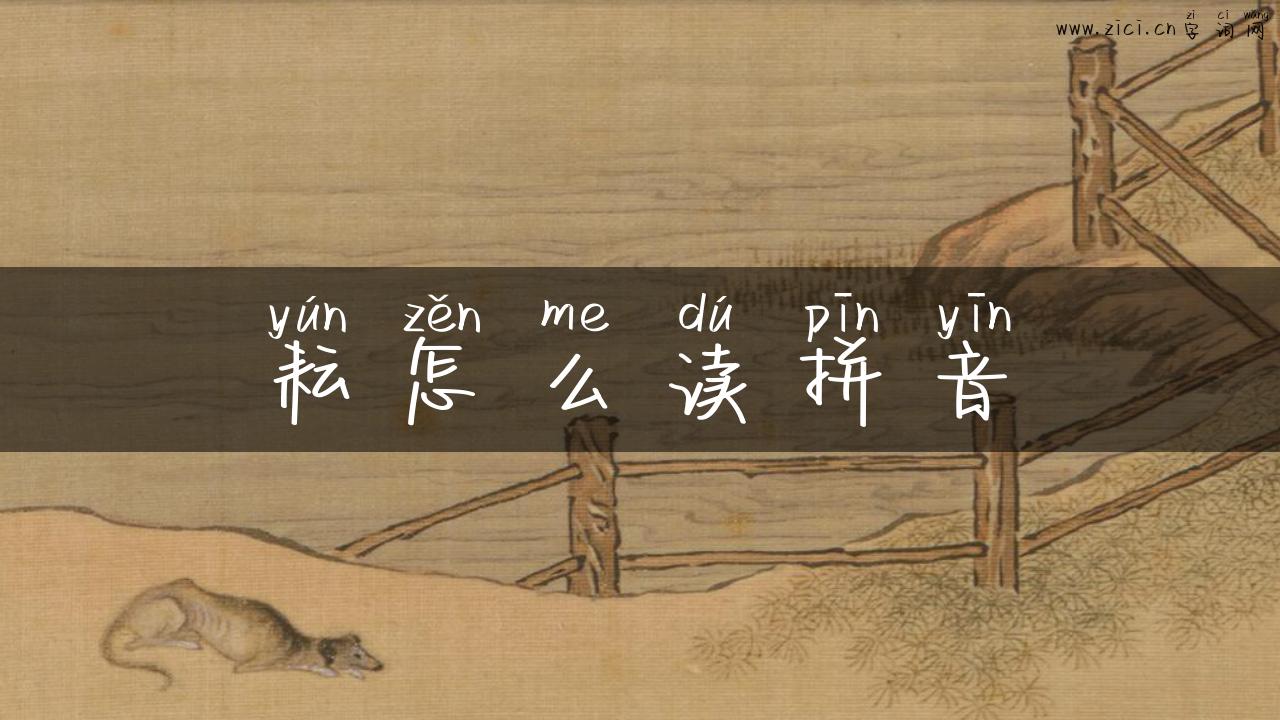 zì cí wǎng
www.zici.cn 字词网
yún zěn me dú pīn yīn
耘怎么读拼音